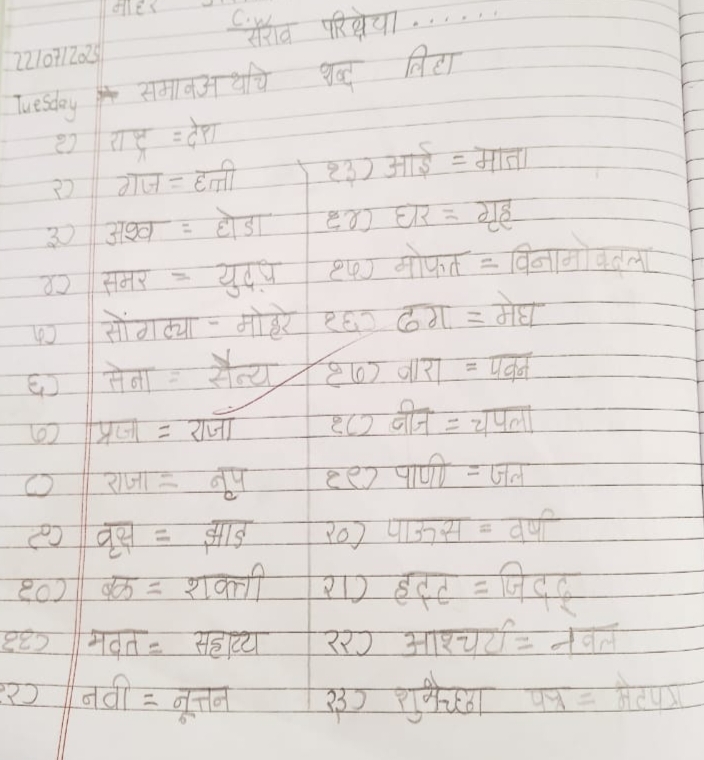 सराव परिक्षेचा . . . . . .
22/07/2025
Tuesday * समानअर्थाचे शब्द लिहा
१) राष्ट्र = देश
२) गज = हत्ती
३) अश्व = घोडा
४) समर = युद्ध
५) सोंगट्या - मोहरे
६) सेना = सैन्य
७) प्रजा = राजा
८) राजा = नृप
९) वृक्ष = झाड
१०) बळ = शक्ती
११) मदत = सहाय्य
१२) नवी = नूतन
१३) आई = माता
१४) घर = गृह
१५) मोफत = विनामोबदला
१६) ढग = मेघ
१७) वारा = पवन
१८) वीज = चपला
१९) पाणी = जल
२०) पाऊस = वर्षा
२१) हट्ट = जिद्द
२२) आश्चर्य = नवल
२३) शुभेच्छा पत्र = भेटपत्र